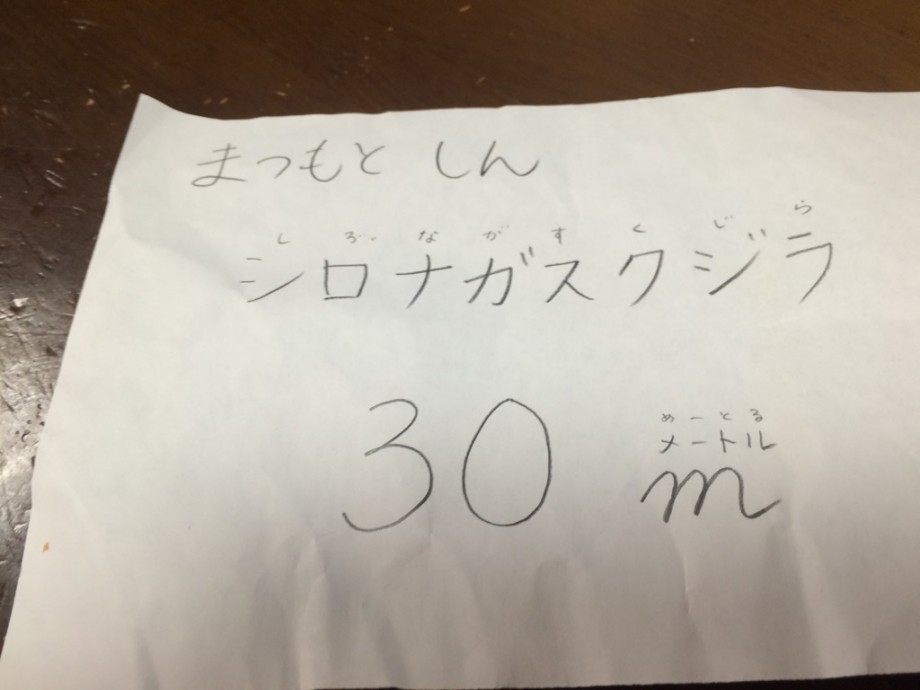 まつもと しん
しろながすくじら
シロナガスクジラ
めーとる
メートル
30 m